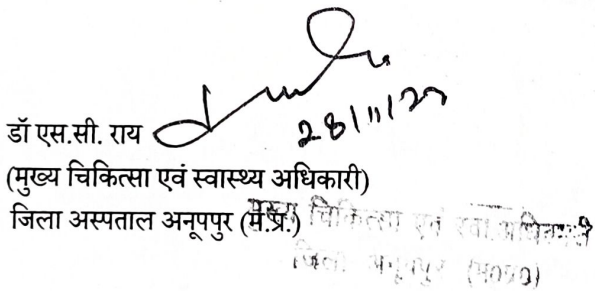 28/11/20
डॉ एस.सी. राय
(मुख्य चिकित्सा एवं स्वास्थ्य अधिकारी)
जिला अस्पताल अनूपपुर (म.प्र.)
मुख्य चिकित्सा एवं स्वा. अधिकारी
जिला अनूपपुर (म०प्र०)